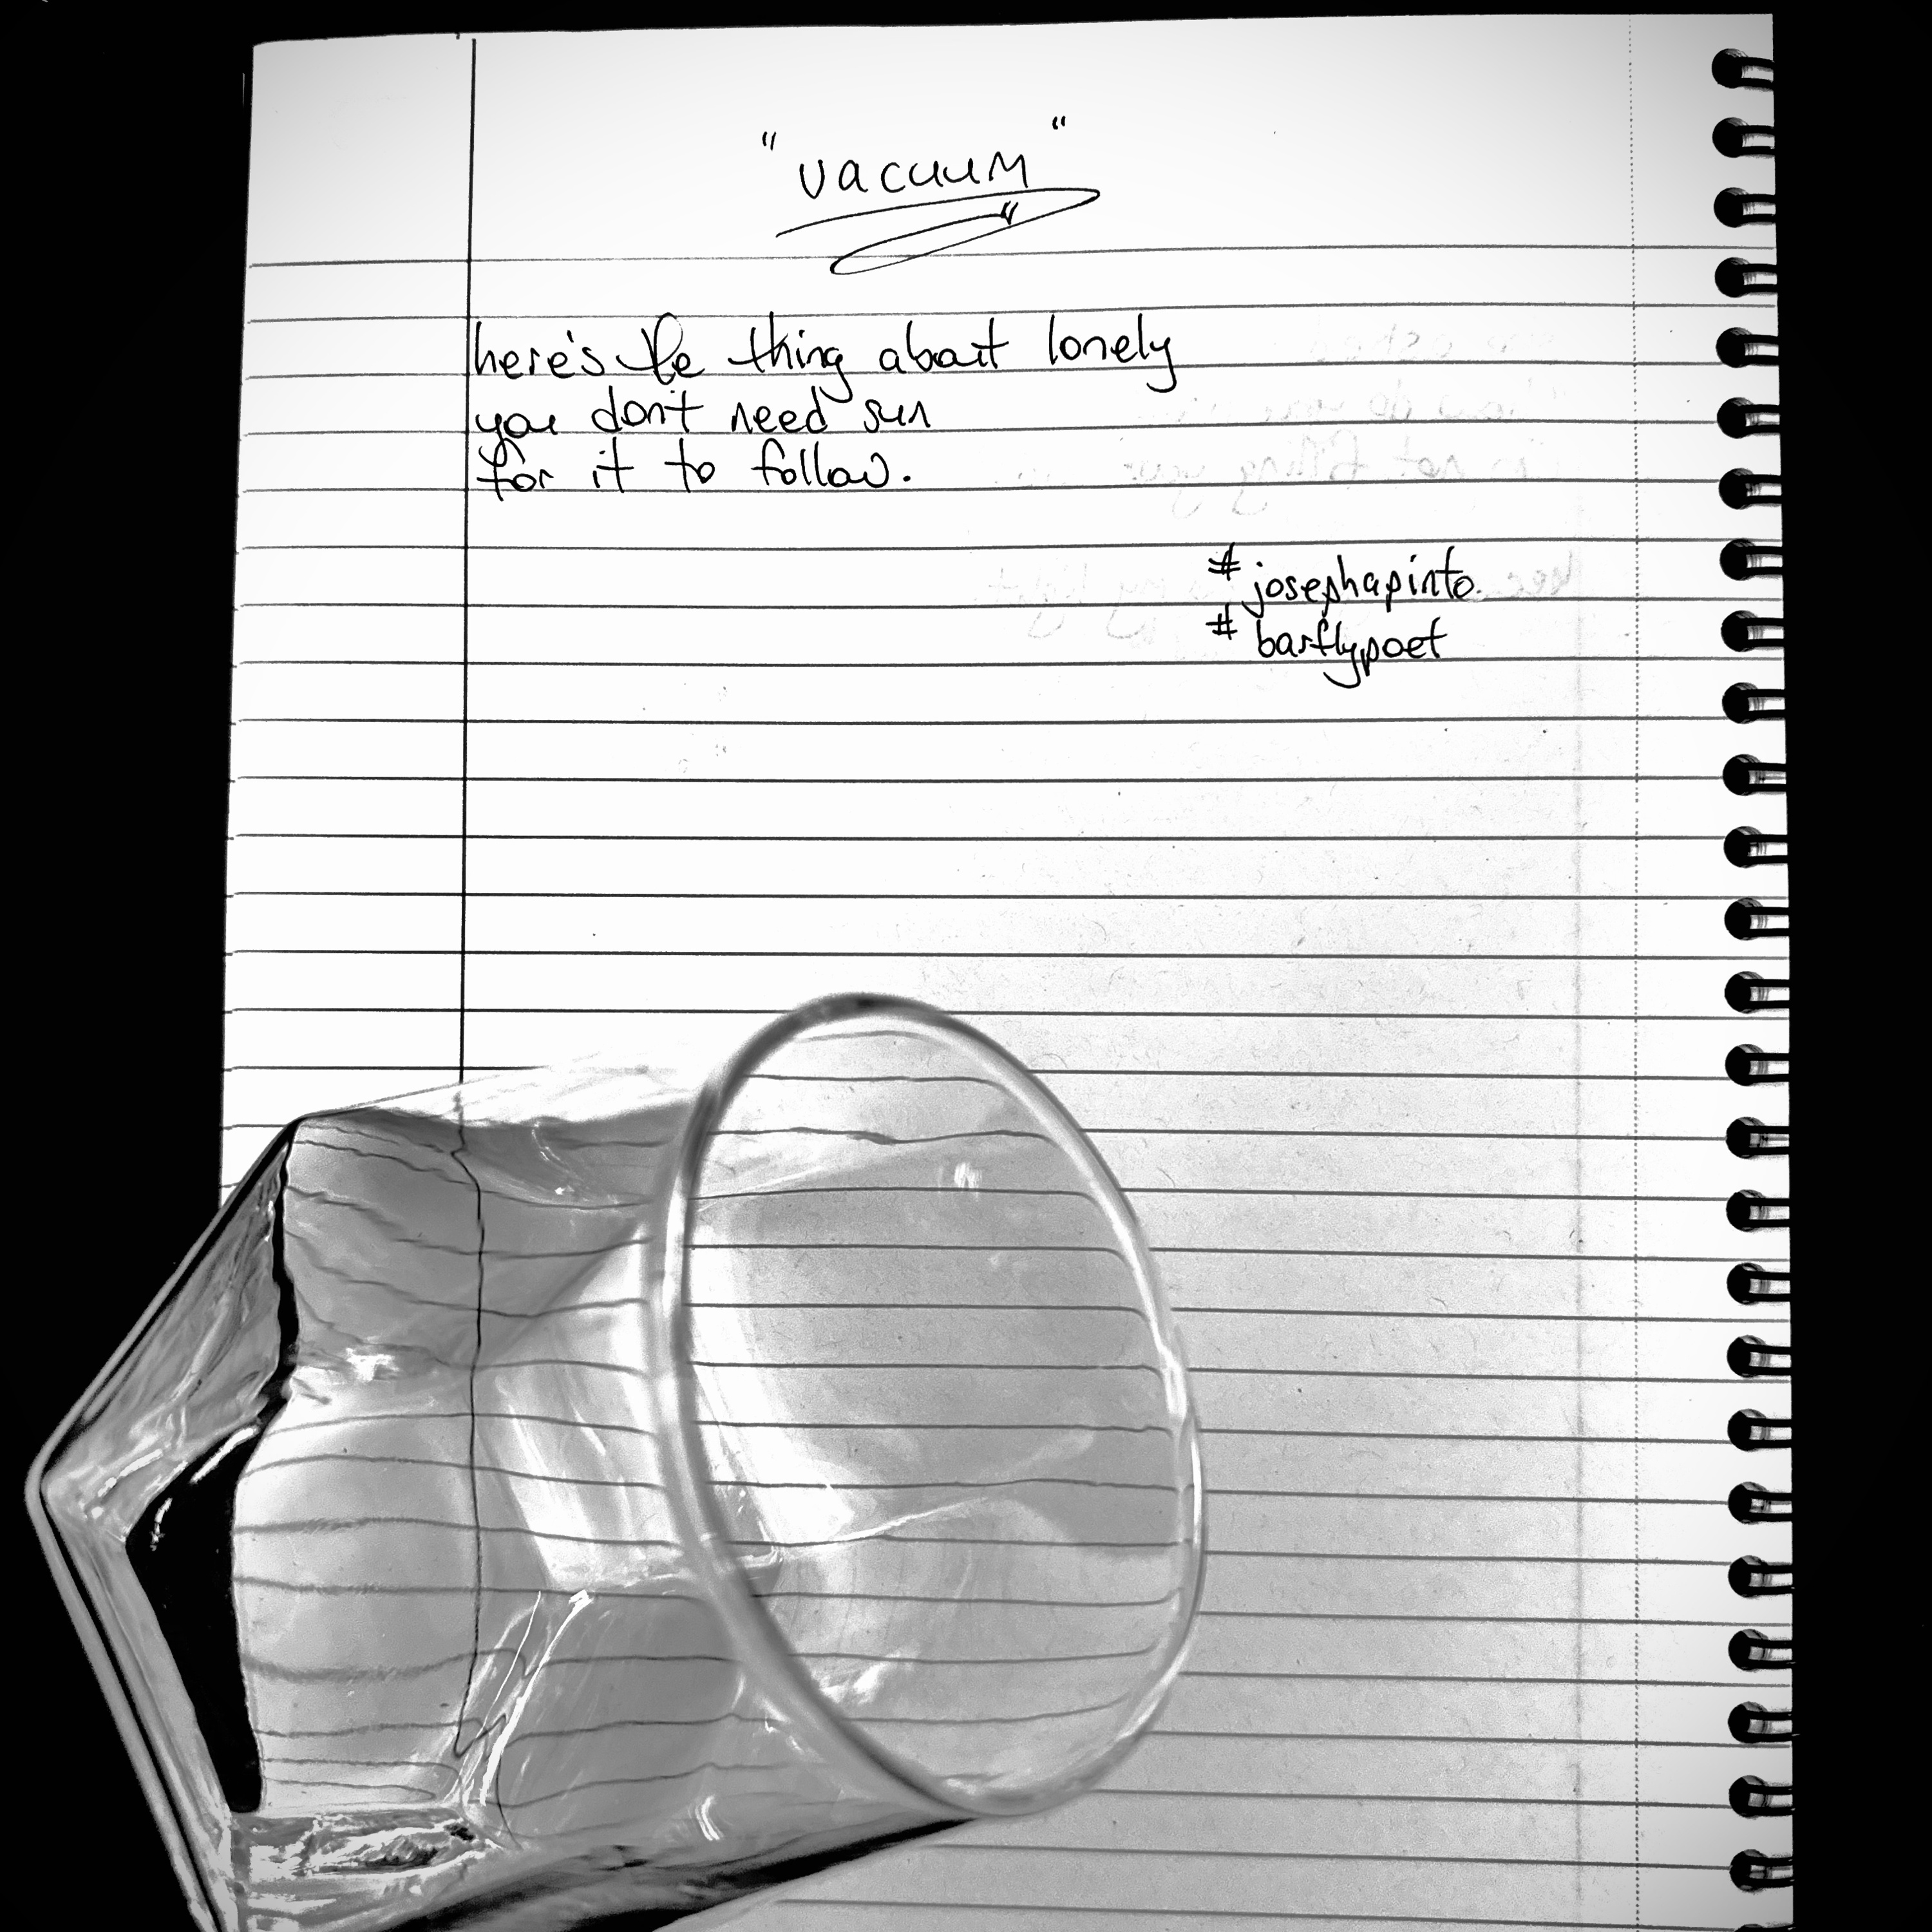 "vacuum"
here's the thing about lonely
you don't need sun
for it to follow.
#josephapinto
#barflypoet